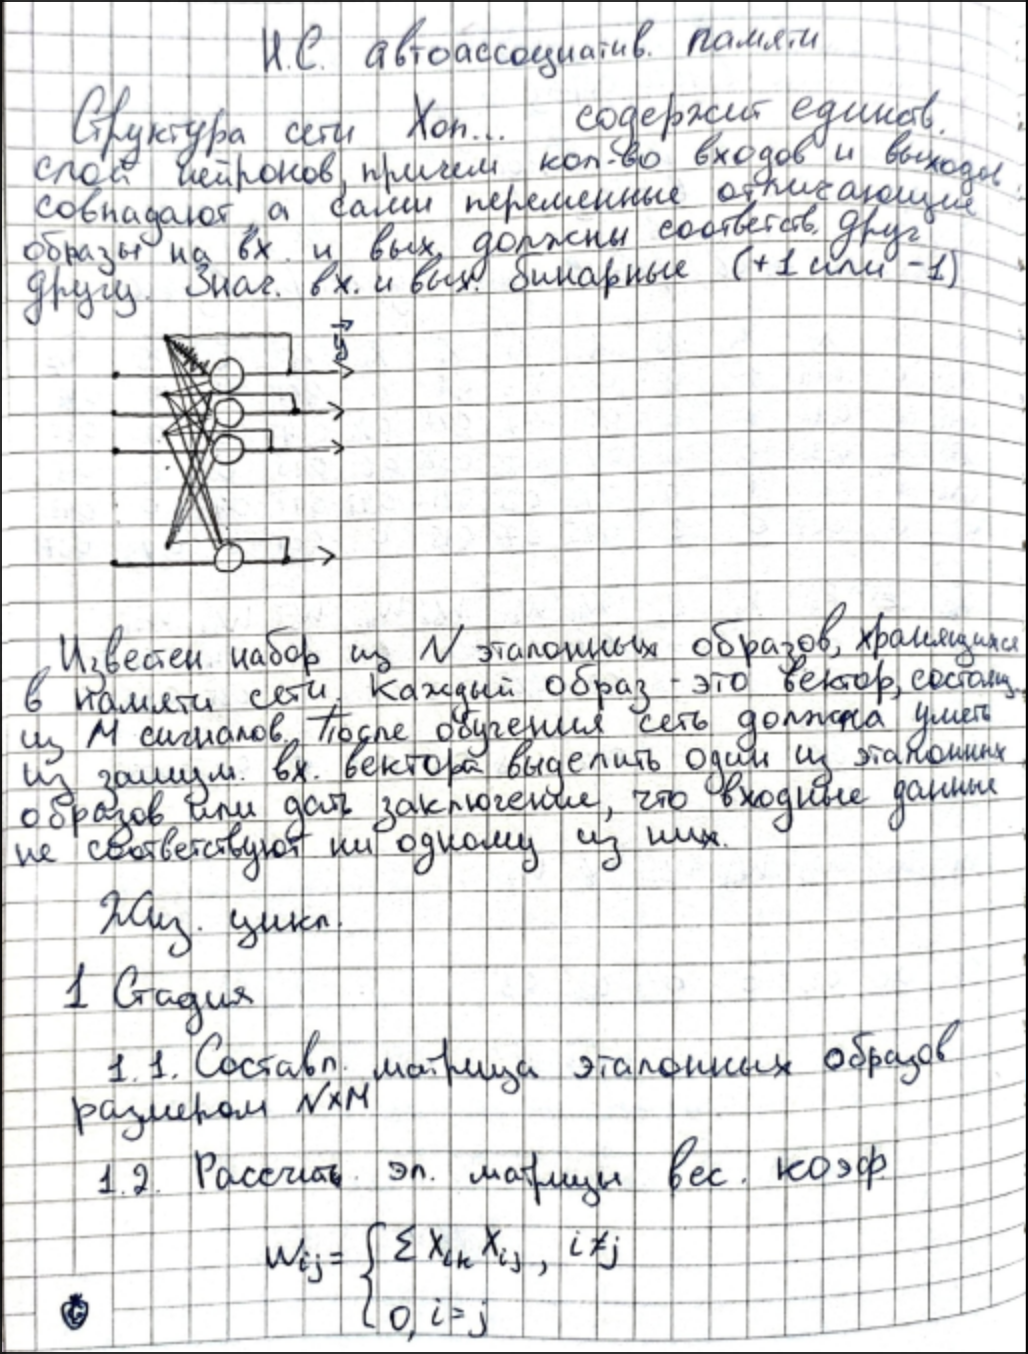 Н.С. автоассоциатив. памяти
Структура сети Хоп... содержит единств.
слой нейронов, причем кол-во входов и выходов
совпадают, а сами переменные отписающие
образы на вх. и вых. должны соответств. друг
другу. Знач. вх. и вых. бинарные (+1 или -1)
y
Известен набор из N эталонных образов, хранящихся
в памяти сети. Каждый образ - это вектор, состоящ.
из M сигналов. После обучения сеть должна уметь
из зашум. вх. вектора выделить один из эталонных
образов или дать заключение, что входные данные
не соответствуют ни одному из них.
Жиз. цикл.
1 Стадия
1.1. Составл. матрица эталонных образов
размером N×M
1.2. Рассчит. эл. матрицы вес. коэф.
Wij = { Σ Xik Xij , i≠j
0, i=j